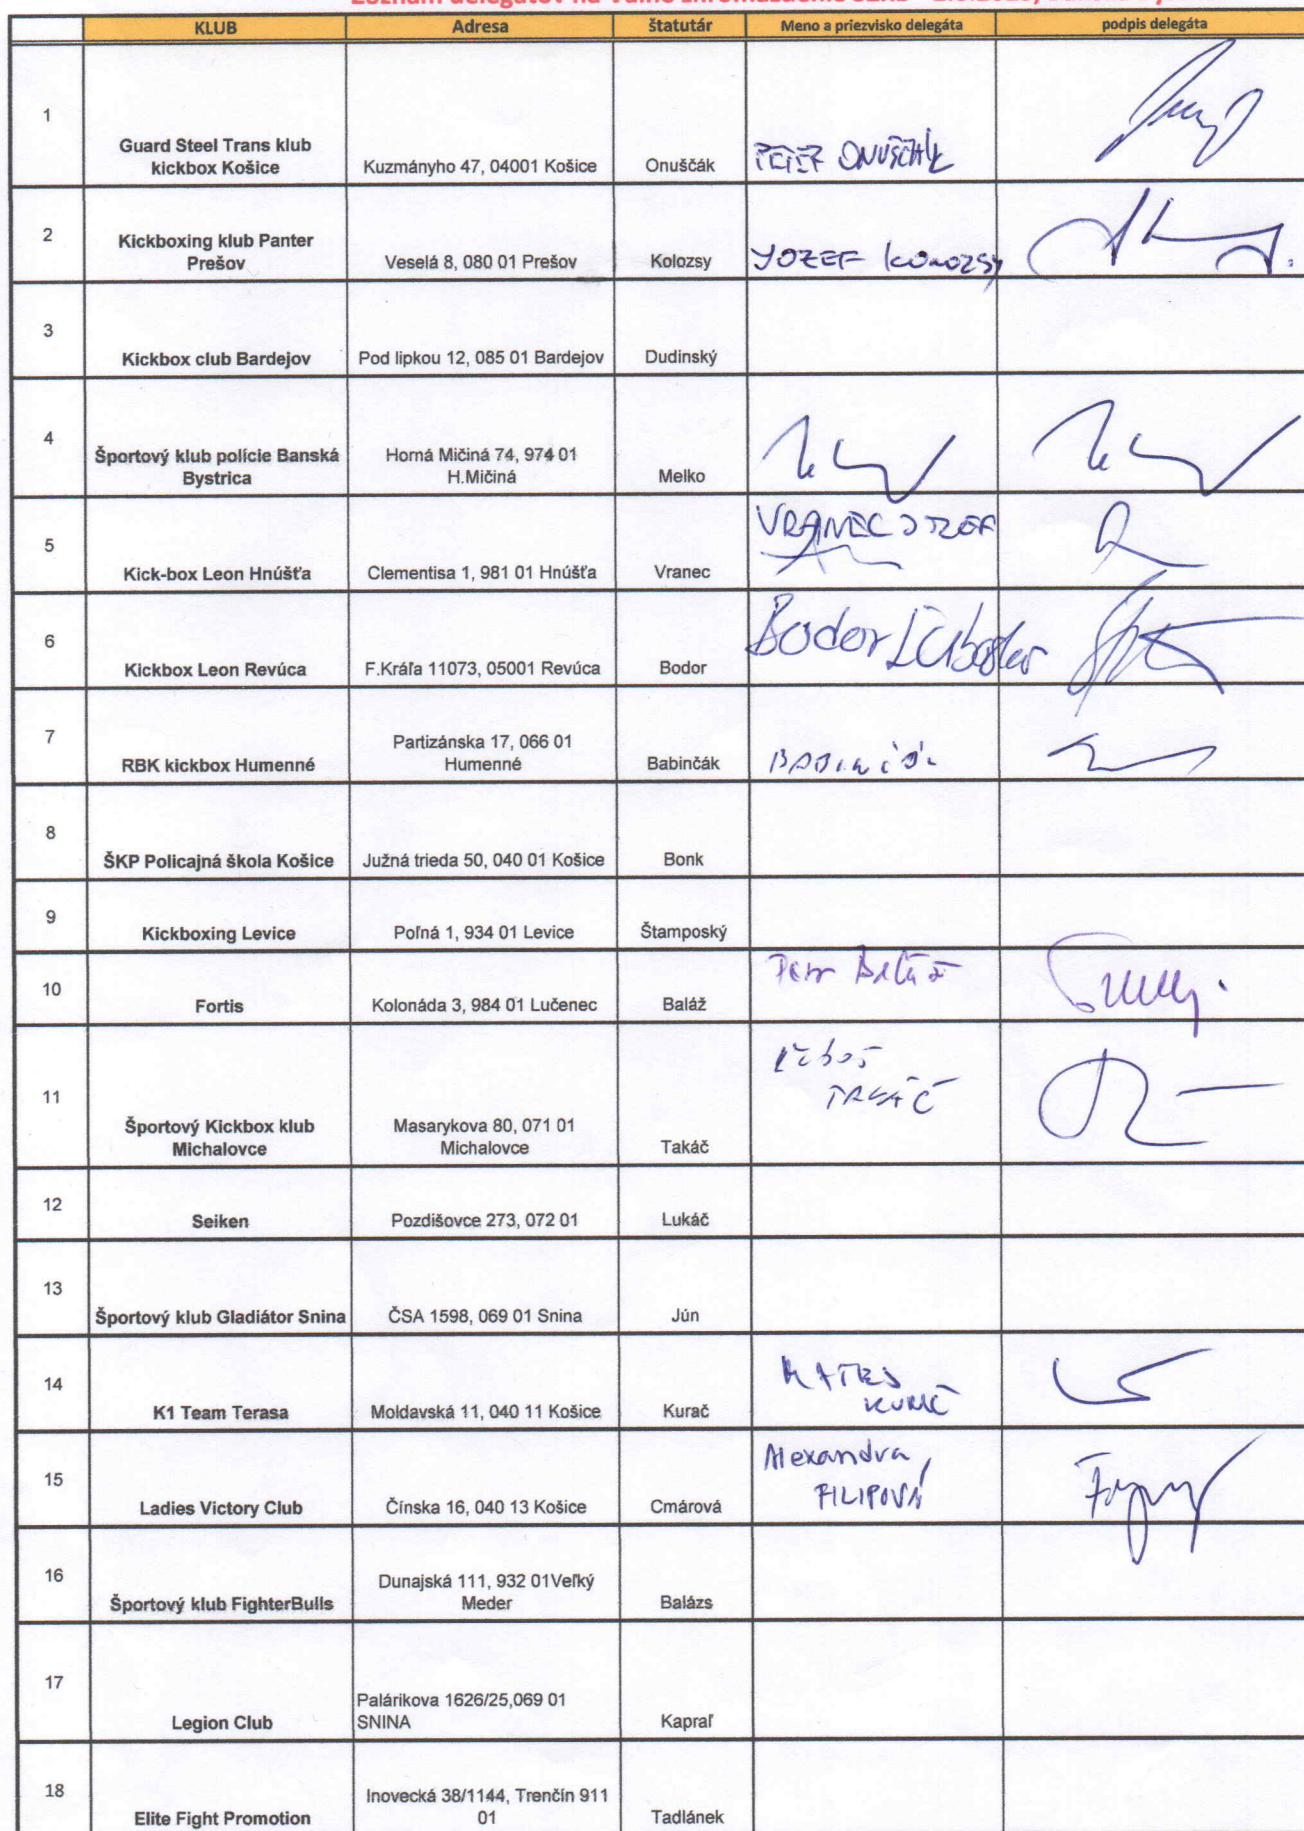 KLUB Adresa štatutár Meno a priezvisko delegáta podpis delegáta
1
Guard Steel Trans klub
kickbox Košice Kuzmányho 47, 04001 Košice Onuščák PETER ONUŠČÁK
2
Kickboxing klub Panter
Prešov Veselá 8, 080 01 Prešov Kolozsy JOZEF KOLOZSY
3
Kickbox club Bardejov Pod lipkou 12, 085 01 Bardejov Dudinský
4
Športový klub polície Banská
Bystrica Horná Mičiná 74, 974 01
H.Mičiná Melko
5
Kick-box Leon Hnúšťa Clementisa 1, 981 01 Hnúšťa Vranec VRANEC JOZEF
6
Kickbox Leon Revúca F.Kráľa 11073, 05001 Revúca Bodor Bodor Ľuboslav
7
RBK kickbox Humenné Partizánska 17, 066 01
Humenné Babinčák
8
ŠKP Policajná škola Košice Južná trieda 50, 040 01 Košice Bonk
9
Kickboxing Levice Poľná 1, 934 01 Levice Štamposký
10
Fortis Kolonáda 3, 984 01 Lučenec Baláž Peter Baláž
11
Športový Kickbox klub
Michalovce Masarykova 80, 071 01
Michalovce Takáč Ľuboš
TAKÁČ
12
Seiken Pozdišovce 273, 072 01 Lukáč
13
Športový klub Gladiátor Snina ČSA 1598, 069 01 Snina Jún
14
K1 Team Terasa Moldavská 11, 040 11 Košice Kurač MATEJ
KURAČ
15
Ladies Victory Club Čínska 16, 040 13 Košice Cmárová Alexandra
FILIPOVÁ
16
Športový klub FighterBulls Dunajská 111, 932 01Veľký
Meder Balázs
17
Legion Club Palárikova 1626/25,069 01
SNINA Kapraľ
18
Elite Fight Promotion Inovecká 38/1144, Trenčín 911
01 Tadlánek